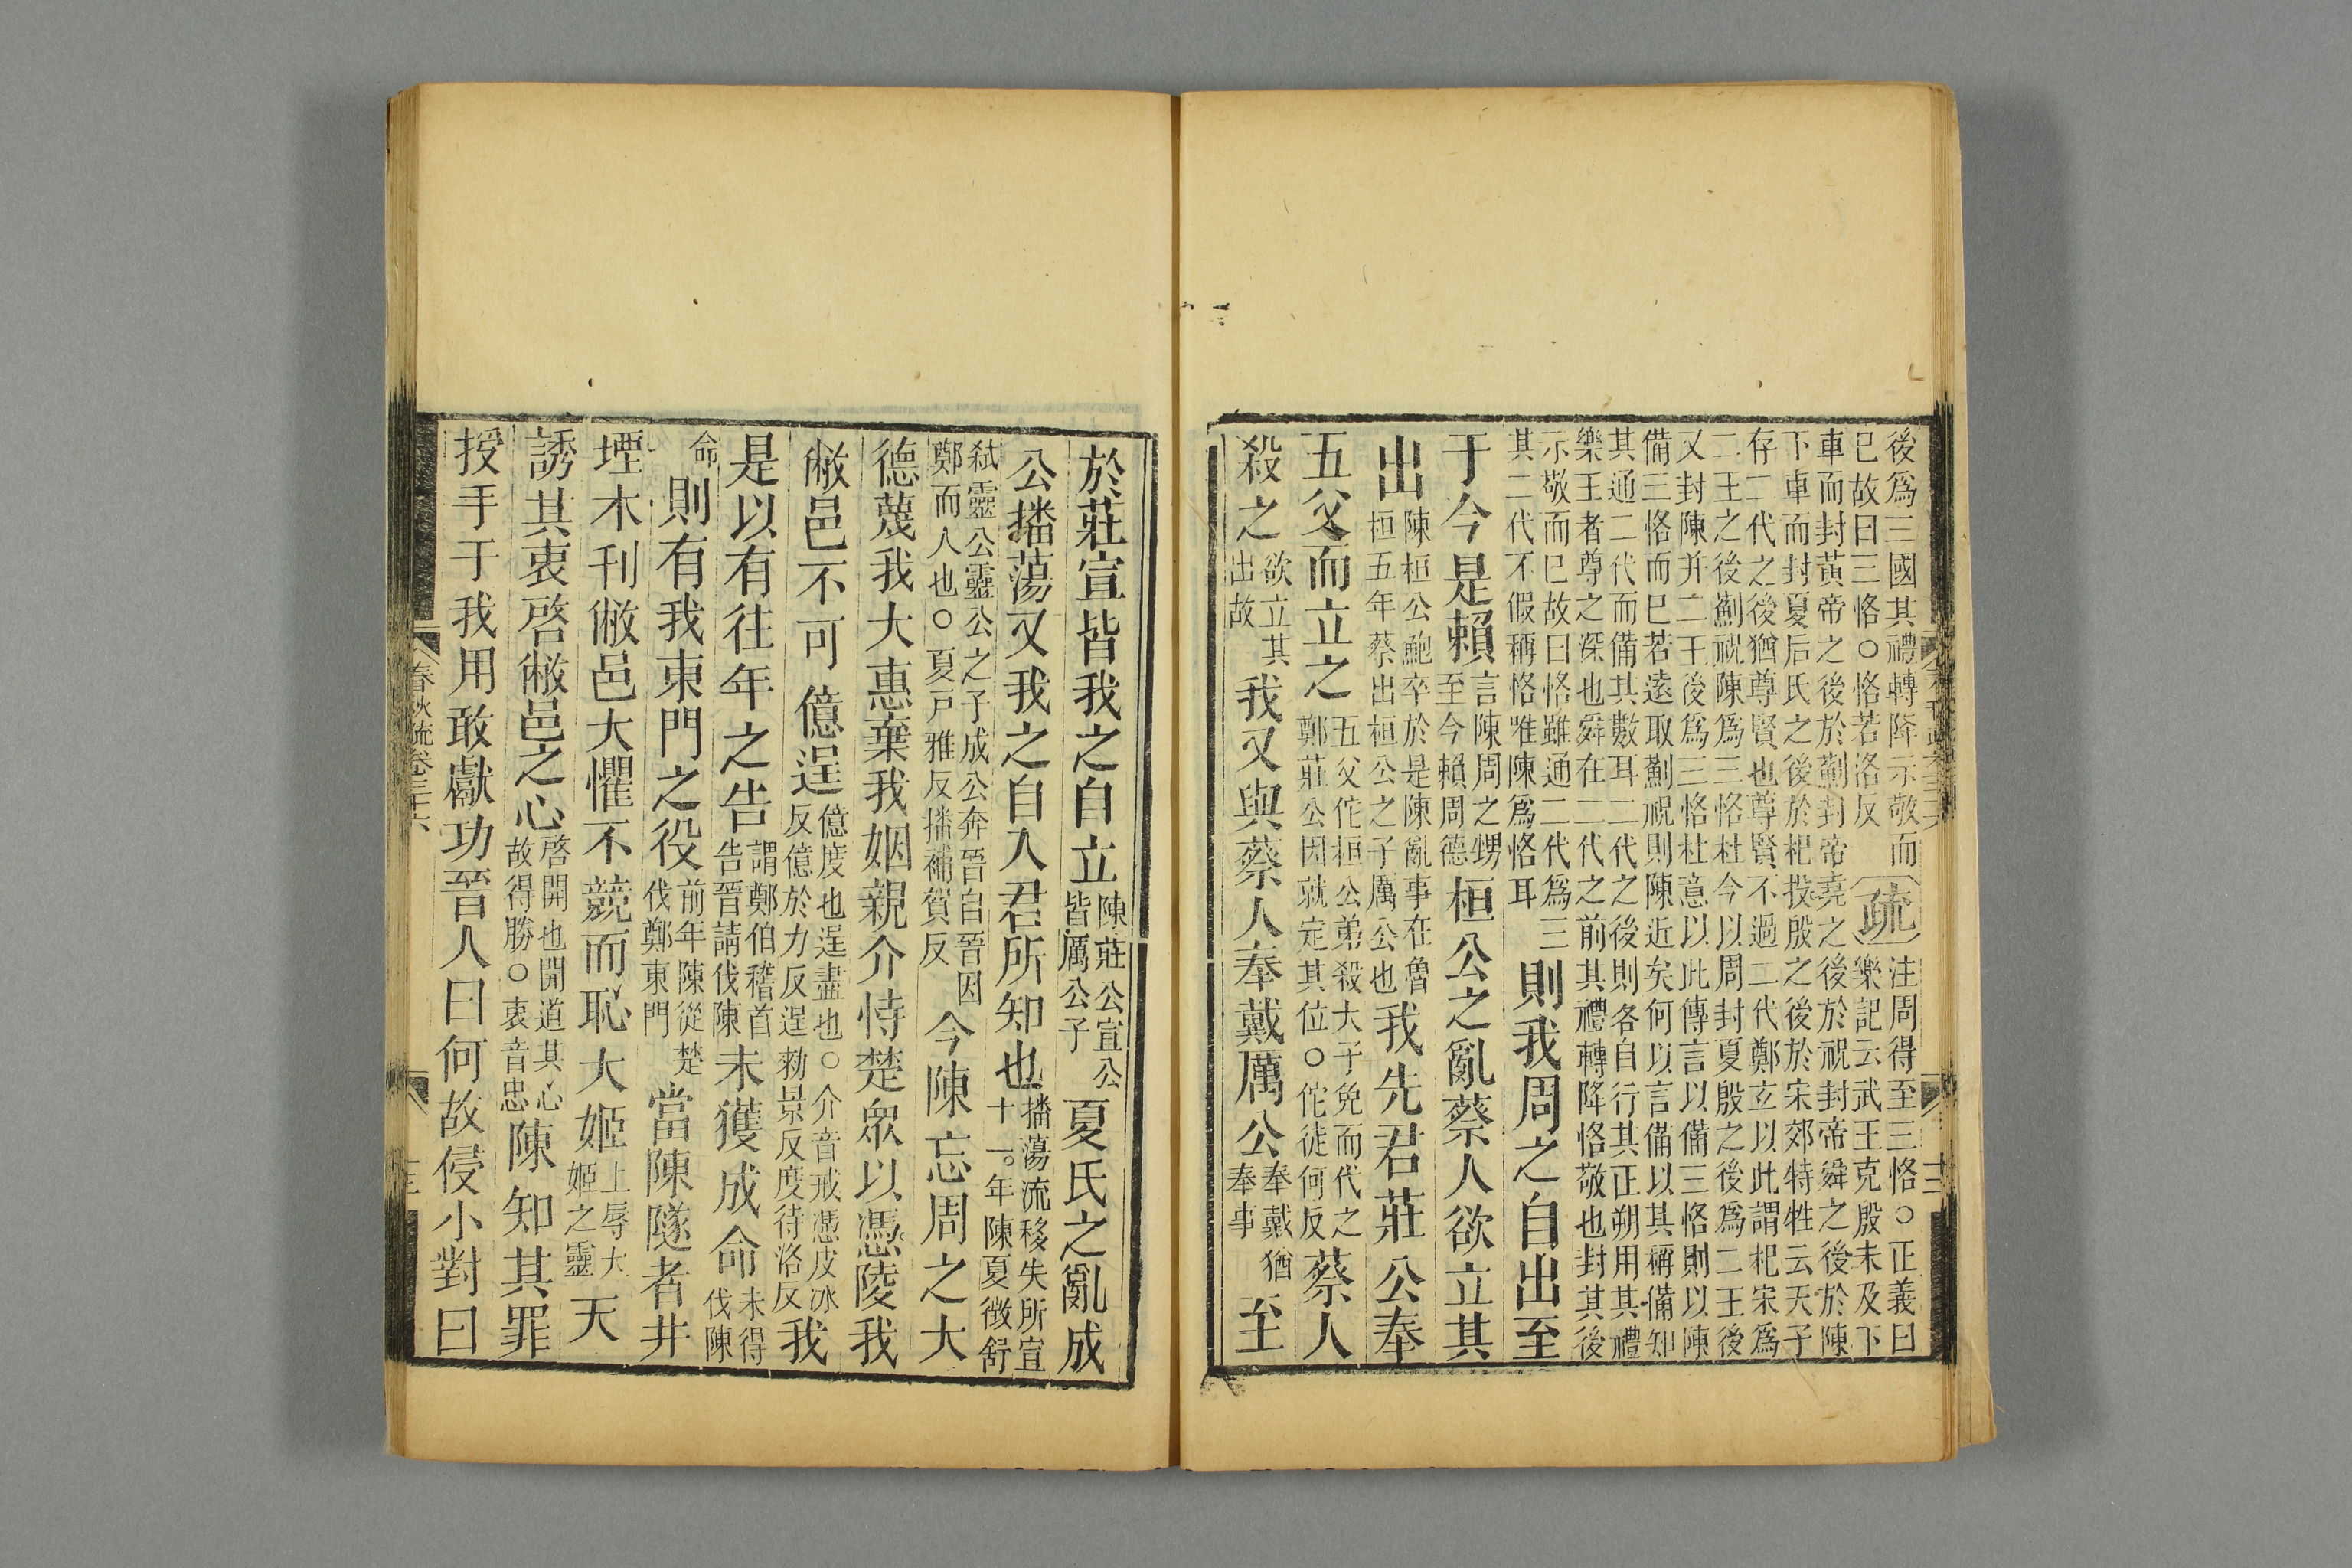 後爲三國其禮轉降示敬而
已故曰三恪○恪若洛反
疏
注周得至三恪○正義曰
樂記云武王克殷未及下
車而封黃帝之後於薊封帝堯之後於祝封帝舜之後於陳
下車而封夏后氏之後於杞投殷之後於宋郊特牲云天子
存二代之後猶尊賢也尊賢不過二代鄭玄以此謂杞宋爲
二王之後薊祝陳爲三恪杜今以周封夏殷之後爲二王後
又封陳并二王後爲三恪杜意以此傳言以備三恪則以陳
備三恪而已若遠取薊祝則陳近矣何以言備以其稱備知
其通二代而備其數耳二代之後則各自行其正朔用其禮
樂王者尊之深也舜在二代之前其禮轉降恪敬也封其後
示敬而已故曰恪雖通二代爲三
其二代不假稱恪唯陳爲恪耳
則我周之自出至
于今是賴言陳周之甥至今賴周德桓公之亂蔡人欲立其
出陳桓公鮑卒於是陳亂事在魯桓五年蔡出桓公之子厲公也我先君莊公奉
五父而立之五父佗桓公弟殺大子免而代之鄭莊公因就定其位○佗徒何反蔡人
殺之欲立其出故我又與蔡人奉戴厲公奉戴猶奉事至
於莊宣皆我之自立陳莊公宣公皆厲公子夏氏之亂成
公播蕩又我之自入君所知也播蕩流移失所宣十一○年陳夏徵舒
弑靈公靈公之子成公奔晉自晉因鄭而人也○夏戸雅反播補賀反今陳忘周之大
德蔑我大惠棄我姻親介恃楚衆以憑陵我
敝邑不可億逞億度也逞盡也○介音戒憑皮冰反億於力反逞勑景反度待洛反我
是以有往年之告謂鄭伯稽首告晉請伐陳未獲成命未得伐陳
命則有我東門之役前年陳從楚伐鄭東門當陳隧者井
堙木刊敝邑大懼不競而恥大姬上辱大姬之靈天
誘其衷啓敝邑之心啓開也開道其心故得勝○衷音忠陳知其罪
授手于我用敢獻功晉人曰何故侵小對曰
春秋疏卷三十六
十三